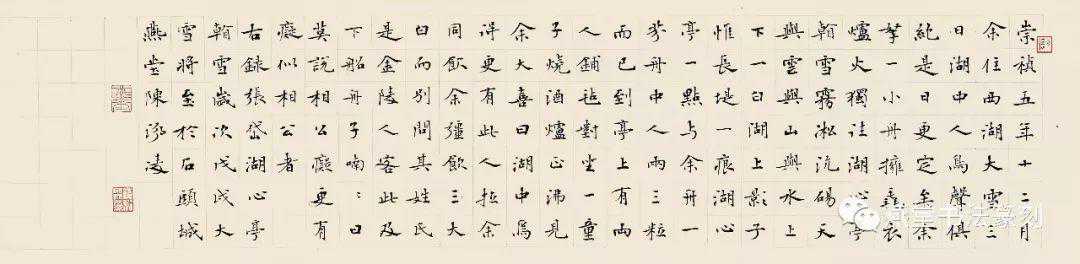 崇禎五年十二月
余住西湖大雪三
日湖中人鳥聲俱
絶是日更定矣余
拏一小舟擁毳衣
爐火獨往湖心亭
看雪霧淞沆碭天
與雲與山與水上
下一白湖上影子
惟長堤一痕湖心
亭一點与余舟一
芥舟中人兩三粒
而已到亭上有兩
人鋪氈對坐一童
子燒酒爐正沸見
余大喜曰湖中焉
得更有此人拉余
同飲余彊飲三大
白而別問其姓氏
是金陵人客此及
下船舟子喃:曰
莫說相公癡更有
癡似相公者
右錄張岱湖心亭
看雪歲次戊戌大
雪將至於石頭城
燕堂陳凌
堂书法篆刻